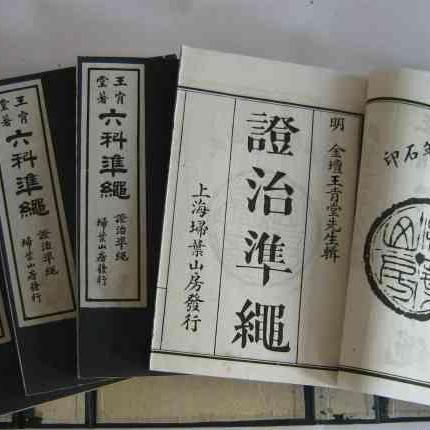 王肯堂著
六科準繩
證治準繩
掃葉山房發行
王肯堂著
六科準繩
證治準繩
掃葉山房發行
明 金壇王肯堂先生輯
證治準繩
上海埽葉山房發行
石印